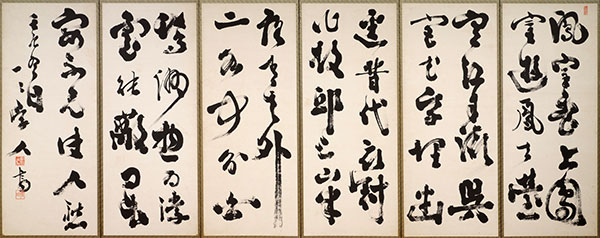 鳳凰臺上鳳
凰遊鳳去臺
空江自流吳
宮花草埋幽
逕晉代衣冠
成古邱三山半
落青天外
二水中分白
鷺洲總為浮
雲能蔽日長
安不見使人愁
學人書